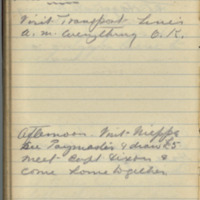 Visit Transport Lines
a.m. Everything O.K.
Afternoon. Visit Dieppe
See Paymaster & draw £5
meet Capt Sixton &
come home together